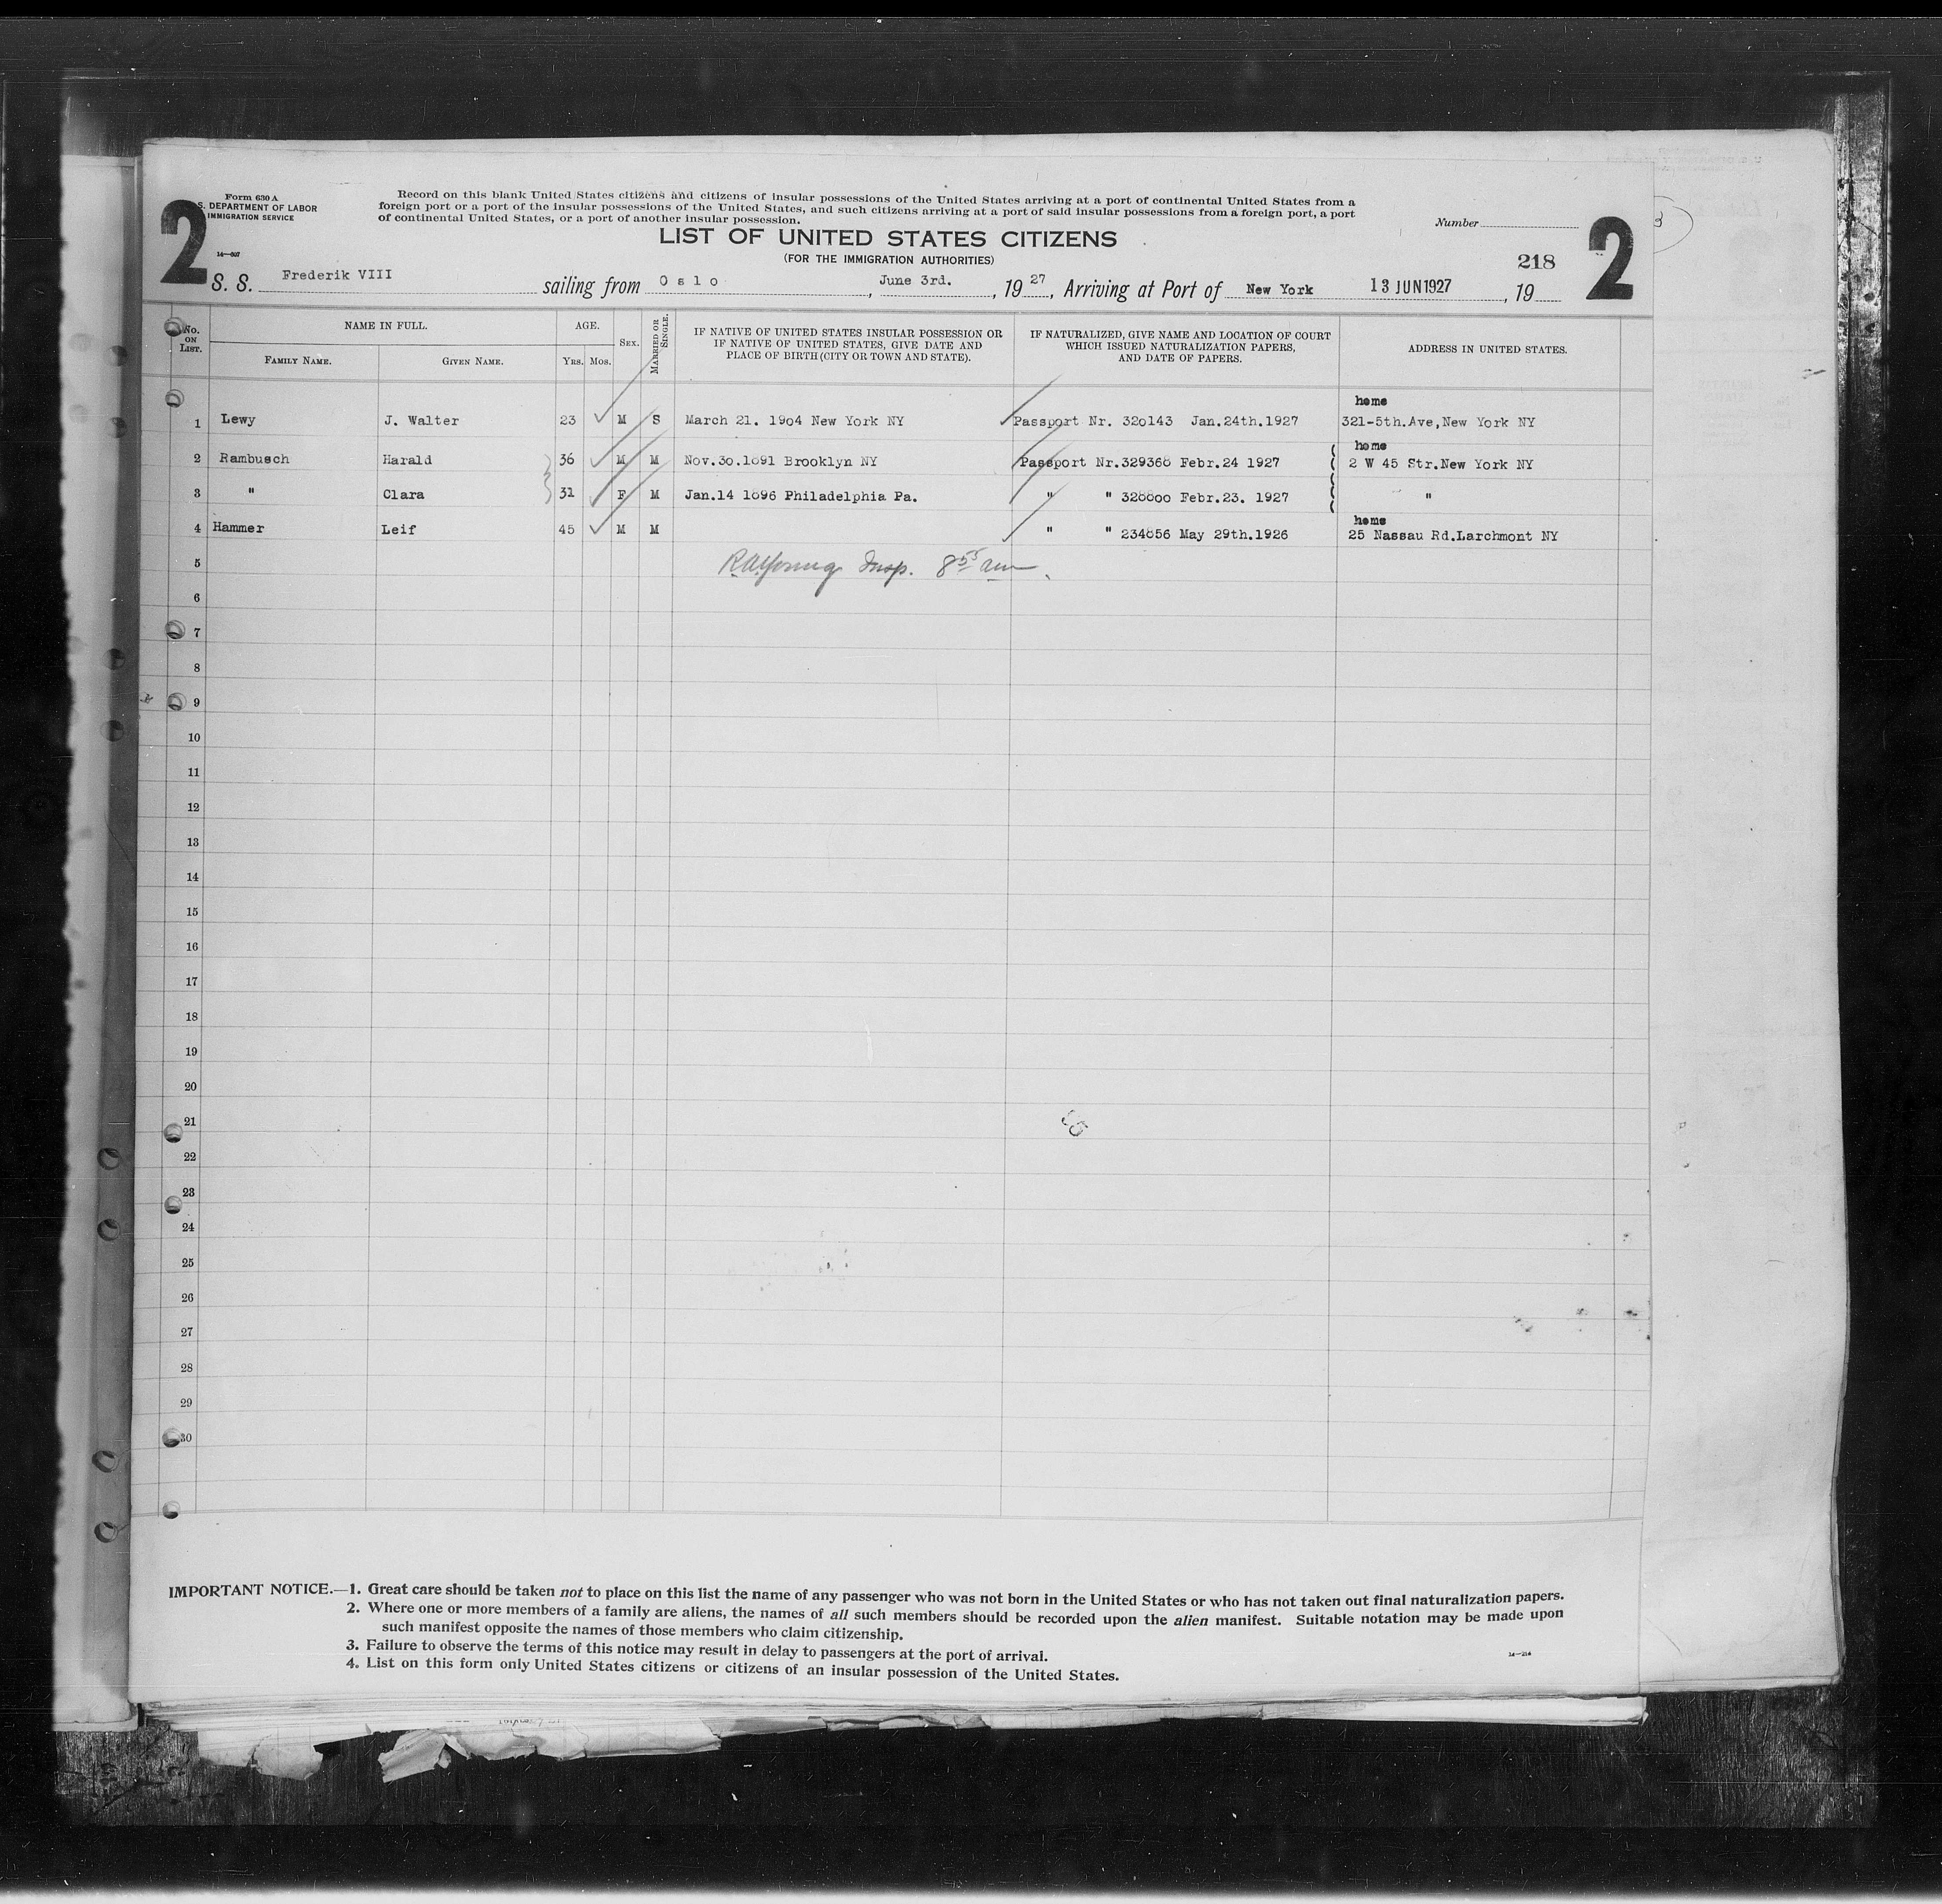 2
Form 630 A
S. DEPARTMENT OF LABOR
IMMIGRATION SERVICE
14—507
Record on this blank United States citizens and citizens of insular possessions of the United States arriving at a port of continental United States from a
foreign port or a port of the insular possessions of the United States, and such citizens arriving at a port of said insular possessions from a foreign port, a port
of continental United States, or a port of another insular possession.
Number
LIST OF UNITED STATES CITIZENS
(FOR THE IMMIGRATION AUTHORITIES)
218
2
S. S. Frederik VIII sailing from Oslo, June 3rd., 19 27, Arriving at Port of New York 13 JUN 1927, 19
No. ON LIST.
NAME IN FULL.
FAMILY NAME.
GIVEN NAME.
AGE.
YRS. MOS.
SEX.
MARRIED OR SINGLE.
IF NATIVE OF UNITED STATES INSULAR POSSESSION OR
IF NATIVE OF UNITED STATES, GIVE DATE AND
PLACE OF BIRTH (CITY OR TOWN AND STATE).
IF NATURALIZED, GIVE NAME AND LOCATION OF COURT
WHICH ISSUED NATURALIZATION PAPERS,
AND DATE OF PAPERS.
ADDRESS IN UNITED STATES.
home
1 Lewy J. Walter 23 M S March 21. 1904 New York NY Passport Nr. 320143 Jan.24th.1927 321-5th.Ave,New York NY
home
2 Rambusch Harald 36 M M Nov.30.1891 Brooklyn NY Passport Nr.329368 Febr.24 1927 2 W 45 Str.New York NY
3 " Clara 31 F M Jan.14 1896 Philadelphia Pa. " " 328800 Febr.23. 1927 "
home
4 Hammer Leif 45 M M " " 234856 May 29th.1926 25 Nassau Rd.Larchmont NY
5 Insp. 8 55 am
6
7
8
9
10
11
12
13
14
15
16
17
18
19
20
21
22
23
24
25
26
27
28
29
30
IMPORTANT NOTICE.—1. Great care should be taken not to place on this list the name of any passenger who was not born in the United States or who has not taken out final naturalization papers.
2. Where one or more members of a family are aliens, the names of all such members should be recorded upon the alien manifest. Suitable notation may be made upon
such manifest opposite the names of those members who claim citizenship.
3. Failure to observe the terms of this notice may result in delay to passengers at the port of arrival.
4. List on this form only United States citizens or citizens of an insular possession of the United States.